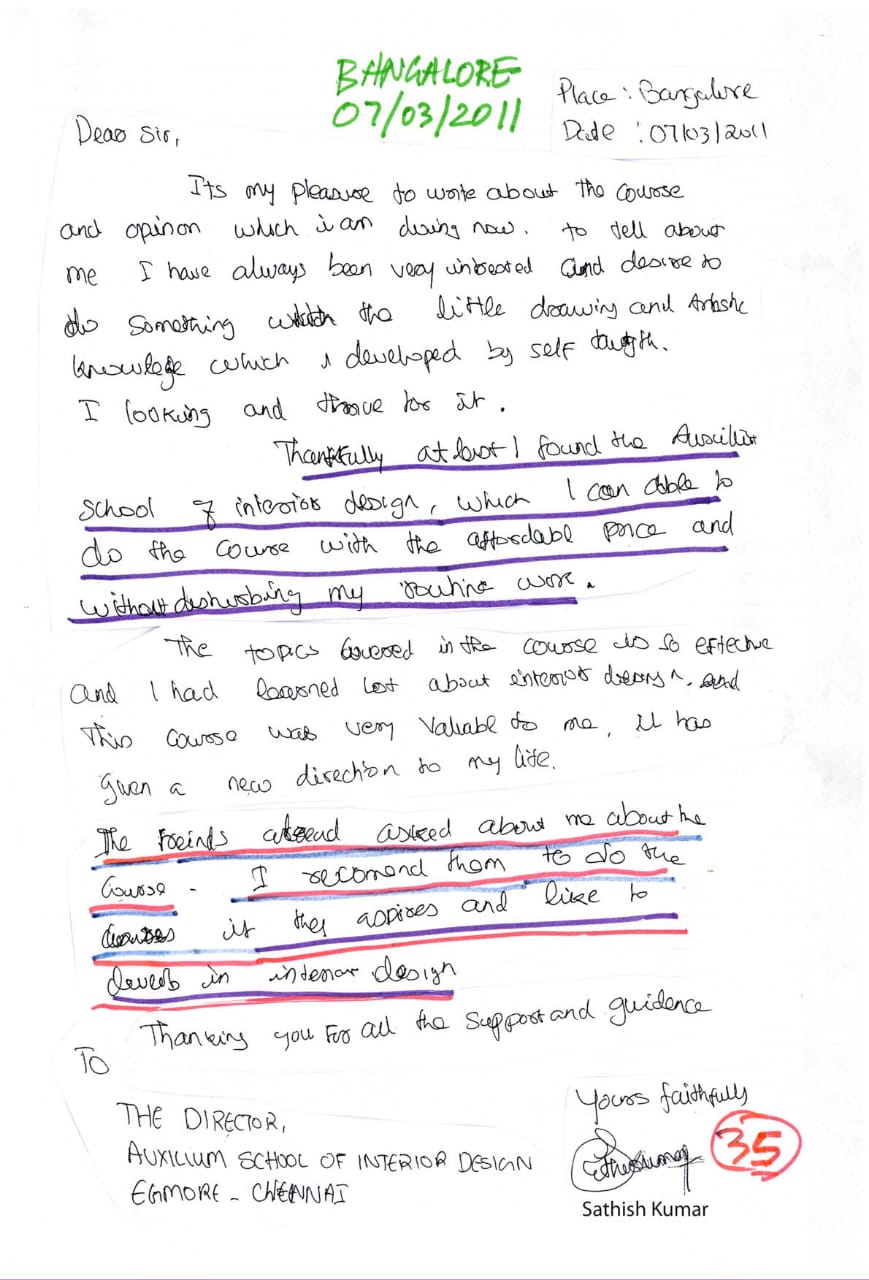 BANGALORE
07/03/2011
Place : Bangalore
Date : 07/03/2011
Dear Sir,
Its my pleasure to write about the course
and opinon which i am doing now. to tell about
me I have always been very and desire to
do something the little drawing and Artistic
knowledge which I developed by self
I looking and for it.
Thankfully at last I found the
school of interior design, which I can able to
do the course with the affordable price and
without my routine work.
The topics covered in the course is so effective
and I had learned lot about interior and
This course was very Valiable to me, it has
given a new direction to my life.
The asked about me about the
course - I recomend them to do the
if they aspires and like to
in interior design
Thanking you For all the support and guidence
To
THE DIRECTOR,
AUXILIUM SCHOOL OF INTERIOR DESIGN
EGMORE - CHENNAI
Yours faithfully
35
Sathish Kumar